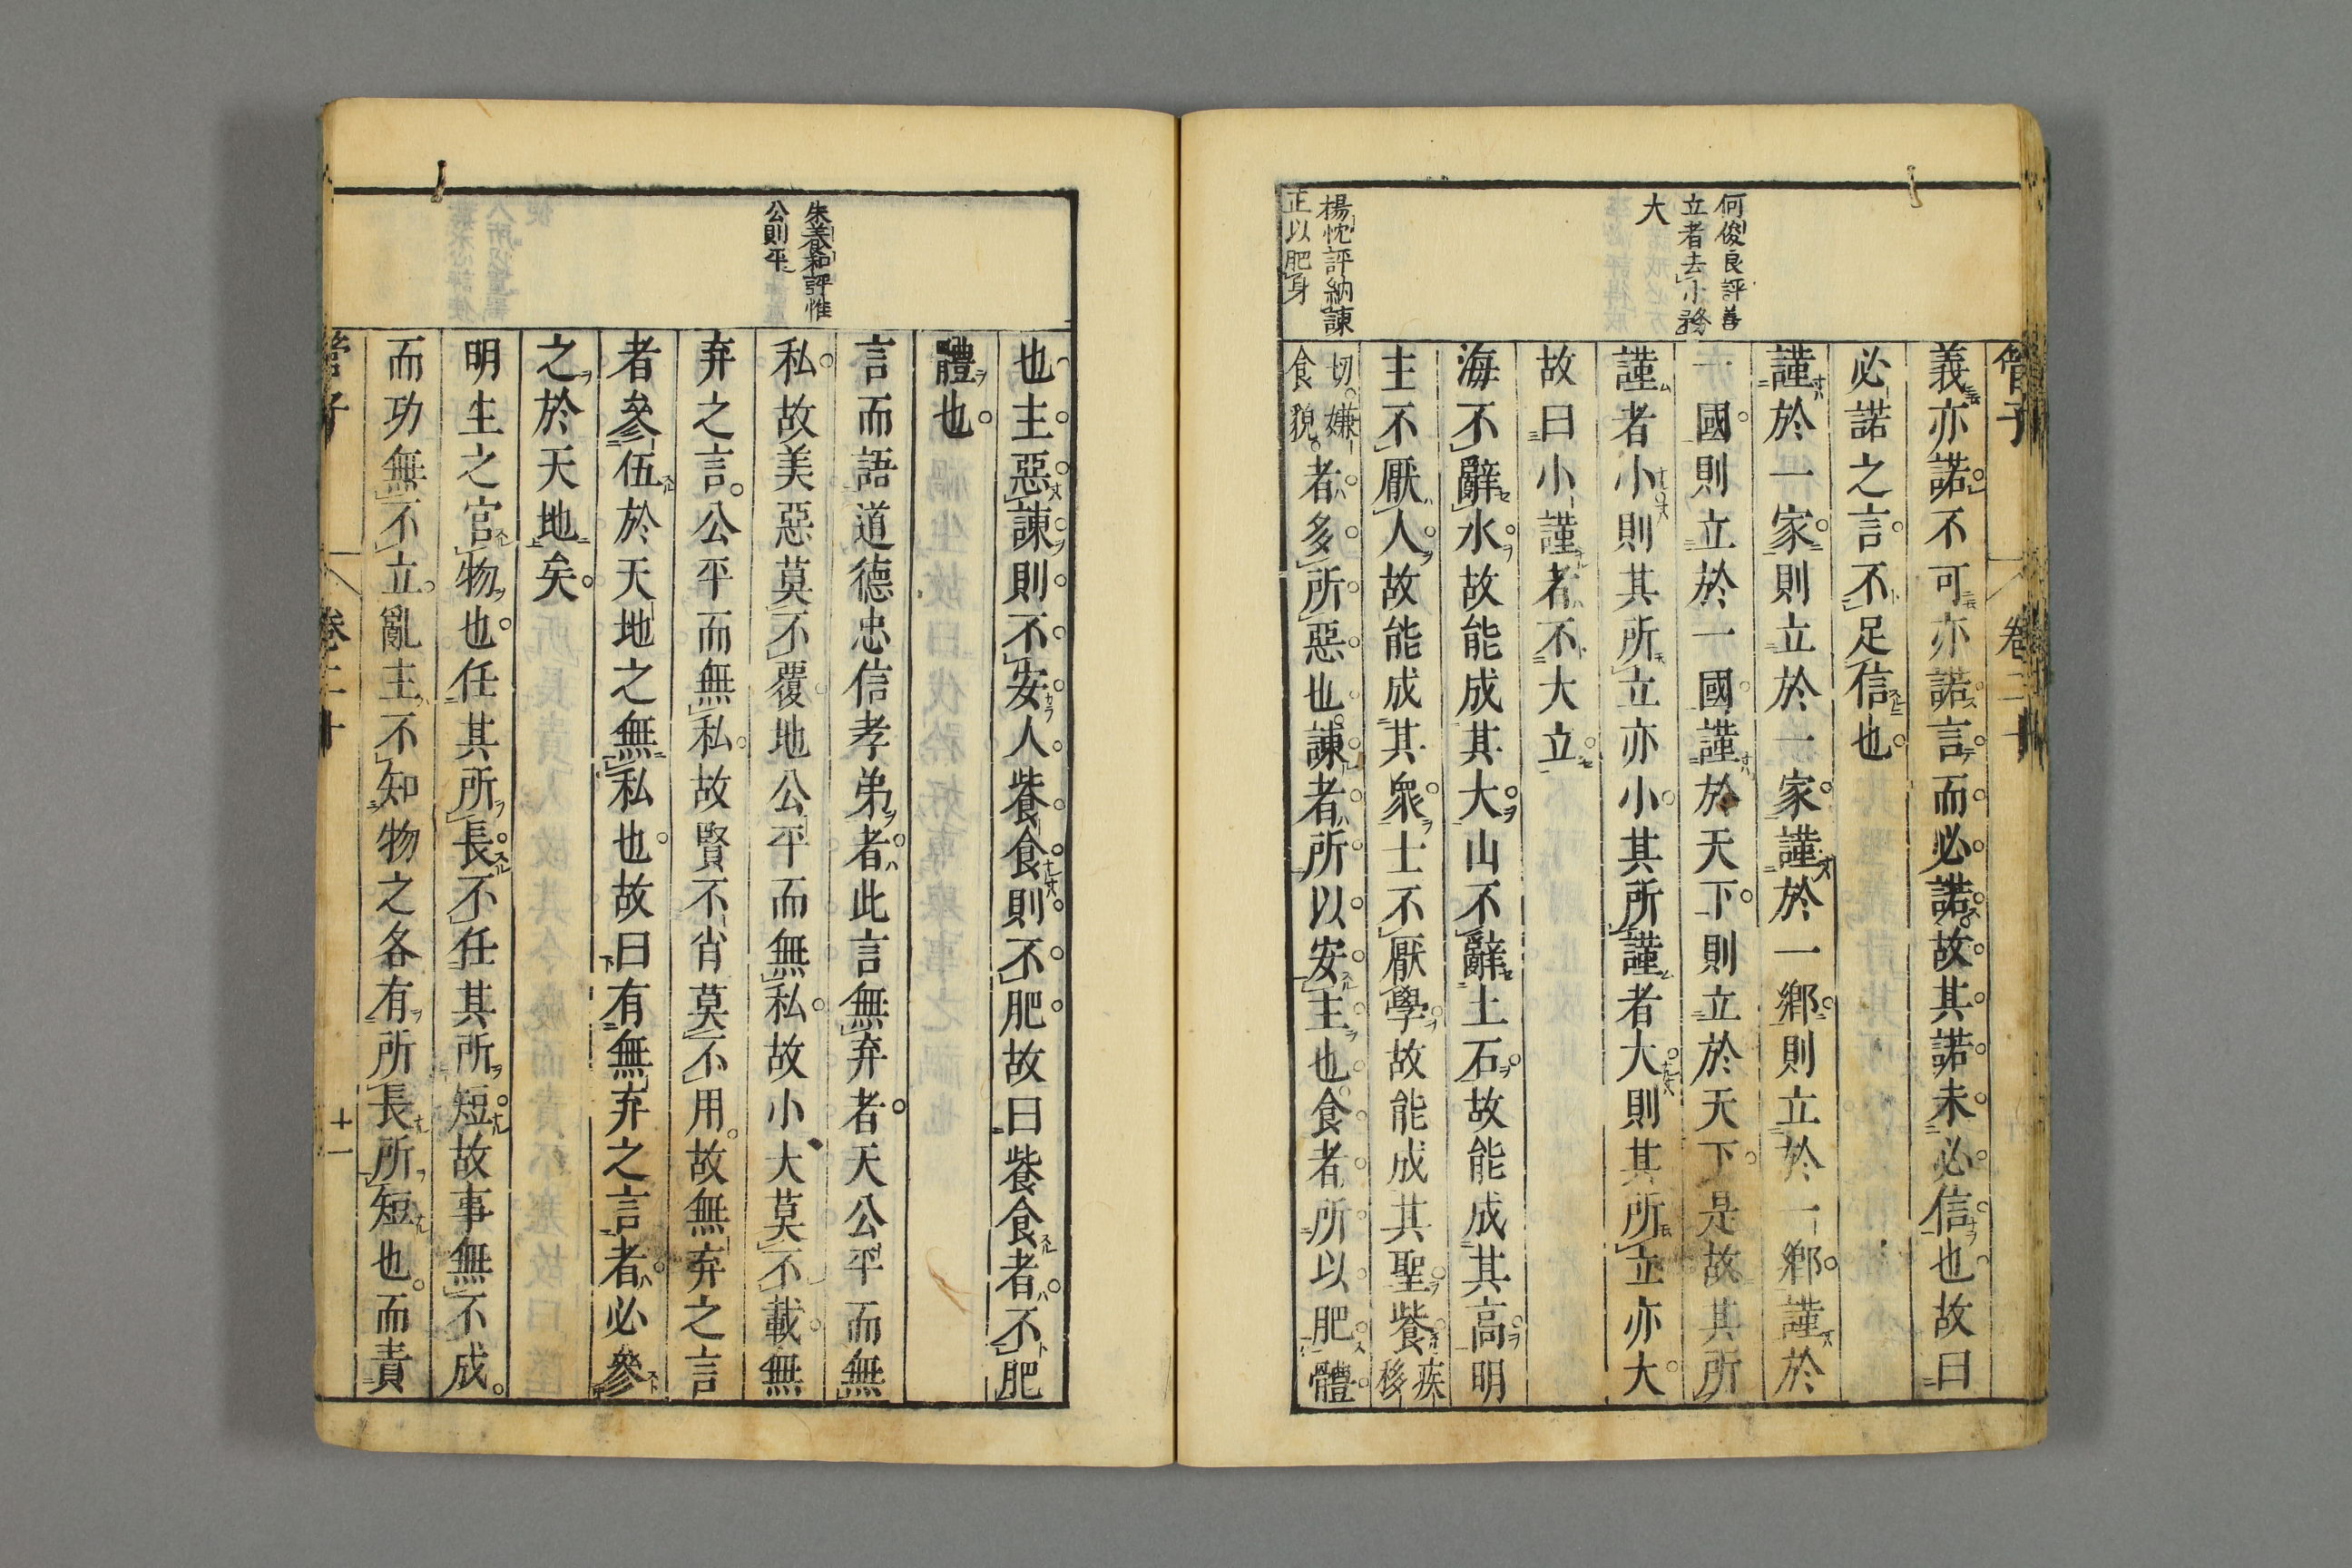 管子
卷二十
何俊良評善
立者去小務
大
楊忱評納諫
正以肥身
義亦諾不可亦諾言而必諾故其諾未必信也故曰
必諾之言不足信也
謹於一家則立於一家謹於一鄉則立於一鄉謹於
一國則立於一國謹於天下則立於天下是故其所
謹者小則其所立亦小其所謹者大則其所立亦大
故曰小謹者不大立
海不辭水故能成其大山不辭土石故能成其高明
主不厭人故能成其衆士不厭學故能成其聖飺疾移
切嫌食貌者多所惡也諫者所以安主也食者所以肥體
朱養和評惟
公則平
也主惡諫則不安人飺食則不肥故曰飺食者不肥
體也
言而語道德忠信孝弟者此言無弃者天公平而無
私故美惡莫不覆地公平而無私故小大莫不載無
弃之言公平而無私故賢不肖莫不用故無弃之言
者參伍於天地之無私也故曰有無弃之言者必參
之於天地矣
明主之官物也任其所長不任其所短故事無不成
而功無不立亂主不知物之各有所長所短也而責
管子
卷二十
十一